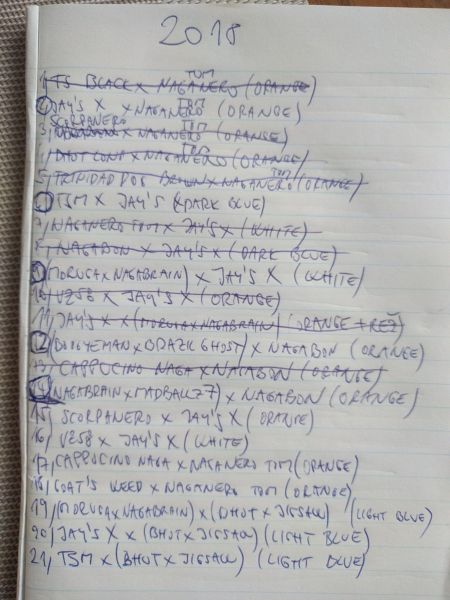 2018
1, TS BLACK X NAGANERO TOM (ORANGE)
2, JAY'S X X NAGANERO TOM (ORANGE)
3, SCORPANERO X NAGANERO TOM (ORANGE)
4, X NAGANERO TOM (ORANGE)
5, TRINIDAD DOG BROWN X NAGANERO TOM (ORANGE)
6, TSM X JAY'S X (DARK BLUE)
7, NAGANERO TOM X JAY'S X (WHITE)
8, NAGABON X JAY'S X (DARK BLUE)
9, (MORUGA X NAGABRAIN) X JAY'S X (WHITE)
10, VZ58 X JAY'S X (ORANGE)
11, JAY'S X X (MORUGA X NAGABRAIN) (ORANGE + REŽ)
12, (BOOGYEMAN X BRAZIL GHOST) X NAGABON (ORANGE)
13, CAPPUCINO NAGA X NAGABON (ORANGE)
14, (NAGABRAIN X MADBALLZ7) X NAGABON (ORANGE)
15, SCORPANERO X JAY'S X (ORANGE)
16, VZ58 X JAY'S X (WHITE)
17, CAPPUCINO NAGA X NAGANERO TOM (ORANGE)
18, GOAT'S WEED X NAGANERO TOM (ORANGE)
19, (MORUGA X NAGABRAIN) X (BHUT X JIGSAW) (LIGHT BLUE)
20, JAY'S X X (BHUT X JIGSAW) (LIGHT BLUE)
21, TSM X (BHUT X JIGSAW) (LIGHT BLUE)